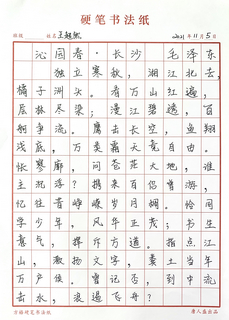 硬笔书法纸
班级 姓名 2021年11月5日
沁园春·长沙 毛泽东
独立寒秋，湘江北去，
橘子洲头。看万山红遍，
层林尽染；漫江碧透，百
舸争流。鹰击长空，鱼翔
浅底，万类霜天竞自由。
怅寥廓，问苍茫大地，谁
主沉浮？携来百侣曾游，
忆往昔峥嵘岁月稠。恰同
学少年，风华正茂；书生
意气，挥斥方遒。指点江
山，激扬文字，粪土当年
万户侯。曾记否，到中流
击水，浪遏飞舟？
方格硬笔书法纸 唐人盛出品